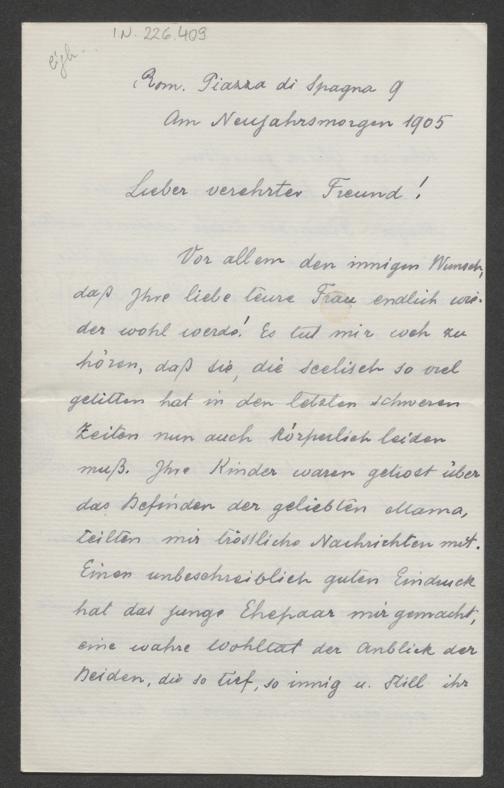 I.N. 226.409
Rom. Piazza di Spagna 9
Am Neujahrsmorgen 1905
Lieber verehrter Freund!
Vor allem den innigen Wunsch,
daß Ihre liebe teure Frau endlich wie-
der wohl werde! Es tut mir weh zu
hören, daß sie, die seelisch so viel
gelitten hat in den letzten schweren
Zeiten nun auch körperlich leiden
muß. Ihre Kinder waren getrost über
das Befinden der geliebten Mama,
teilten mir tröstliche Nachrichten mit.
Einen unbeschreiblich guten Eindruck
hat das junge Ehepaar mir gemacht,
eine wahre Wohltat der Anblick der
Beiden, die so tief, so innig u. still ihr